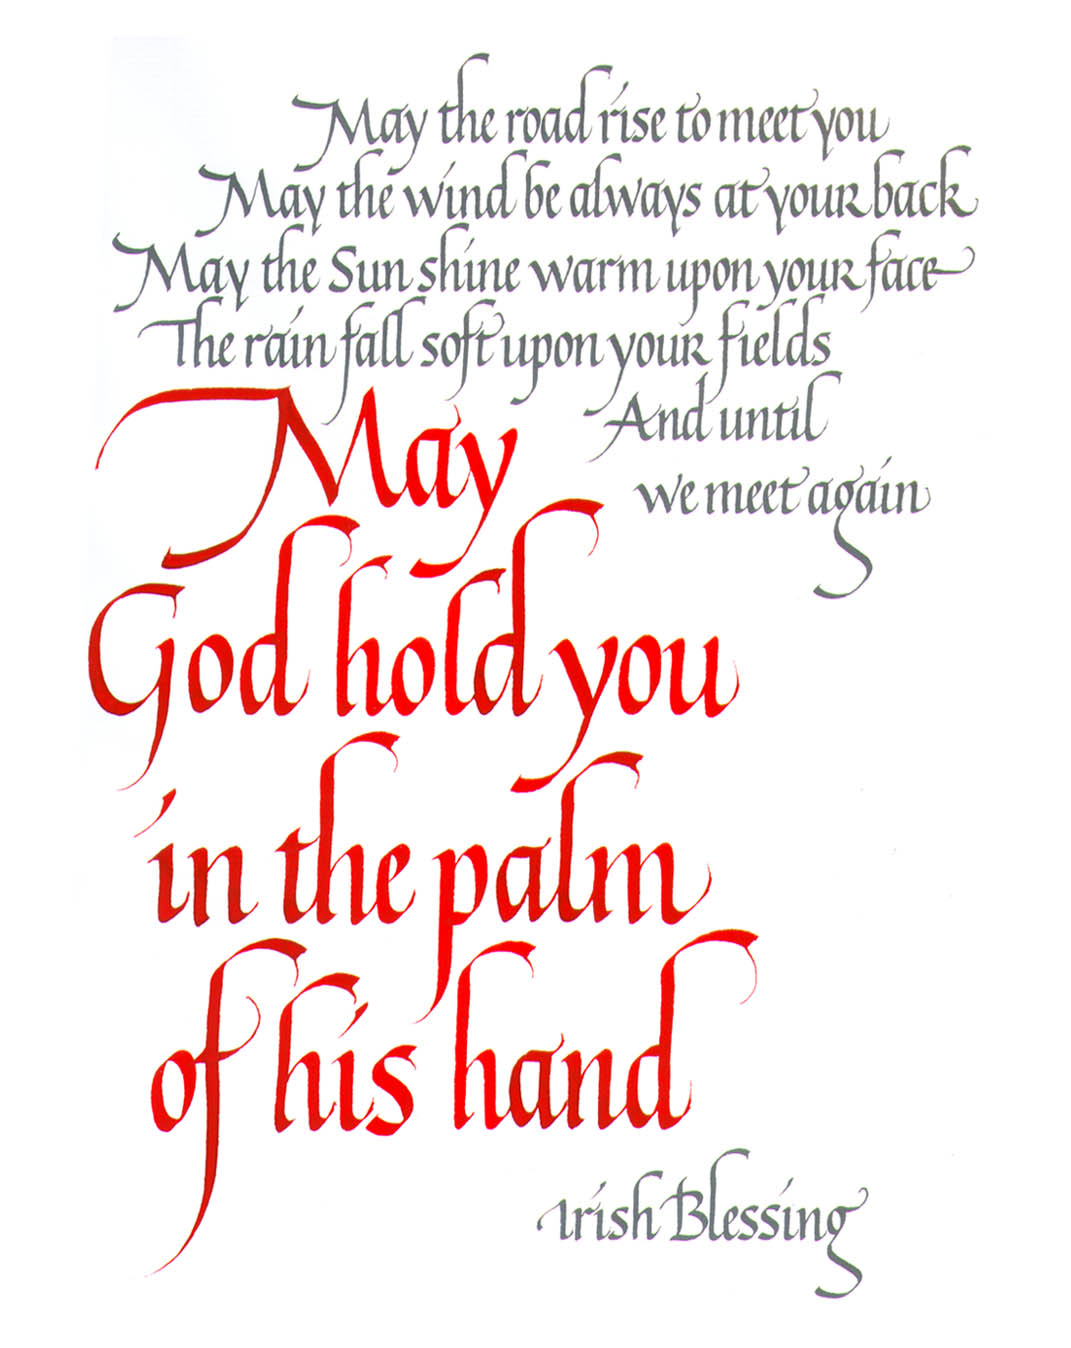 May the road rise to meet you
May the wind be always at your back
May the Sun shine warm upon your face
The rain fall soft upon your fields
And until
we meet again
May
God hold you
in the palm
of his hand
Irish Blessing